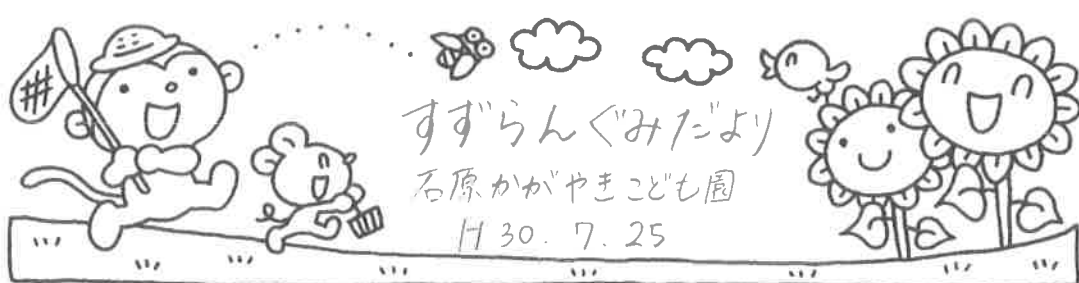 すずらんぐみだより
石原かがやきこども園
H30.7.25